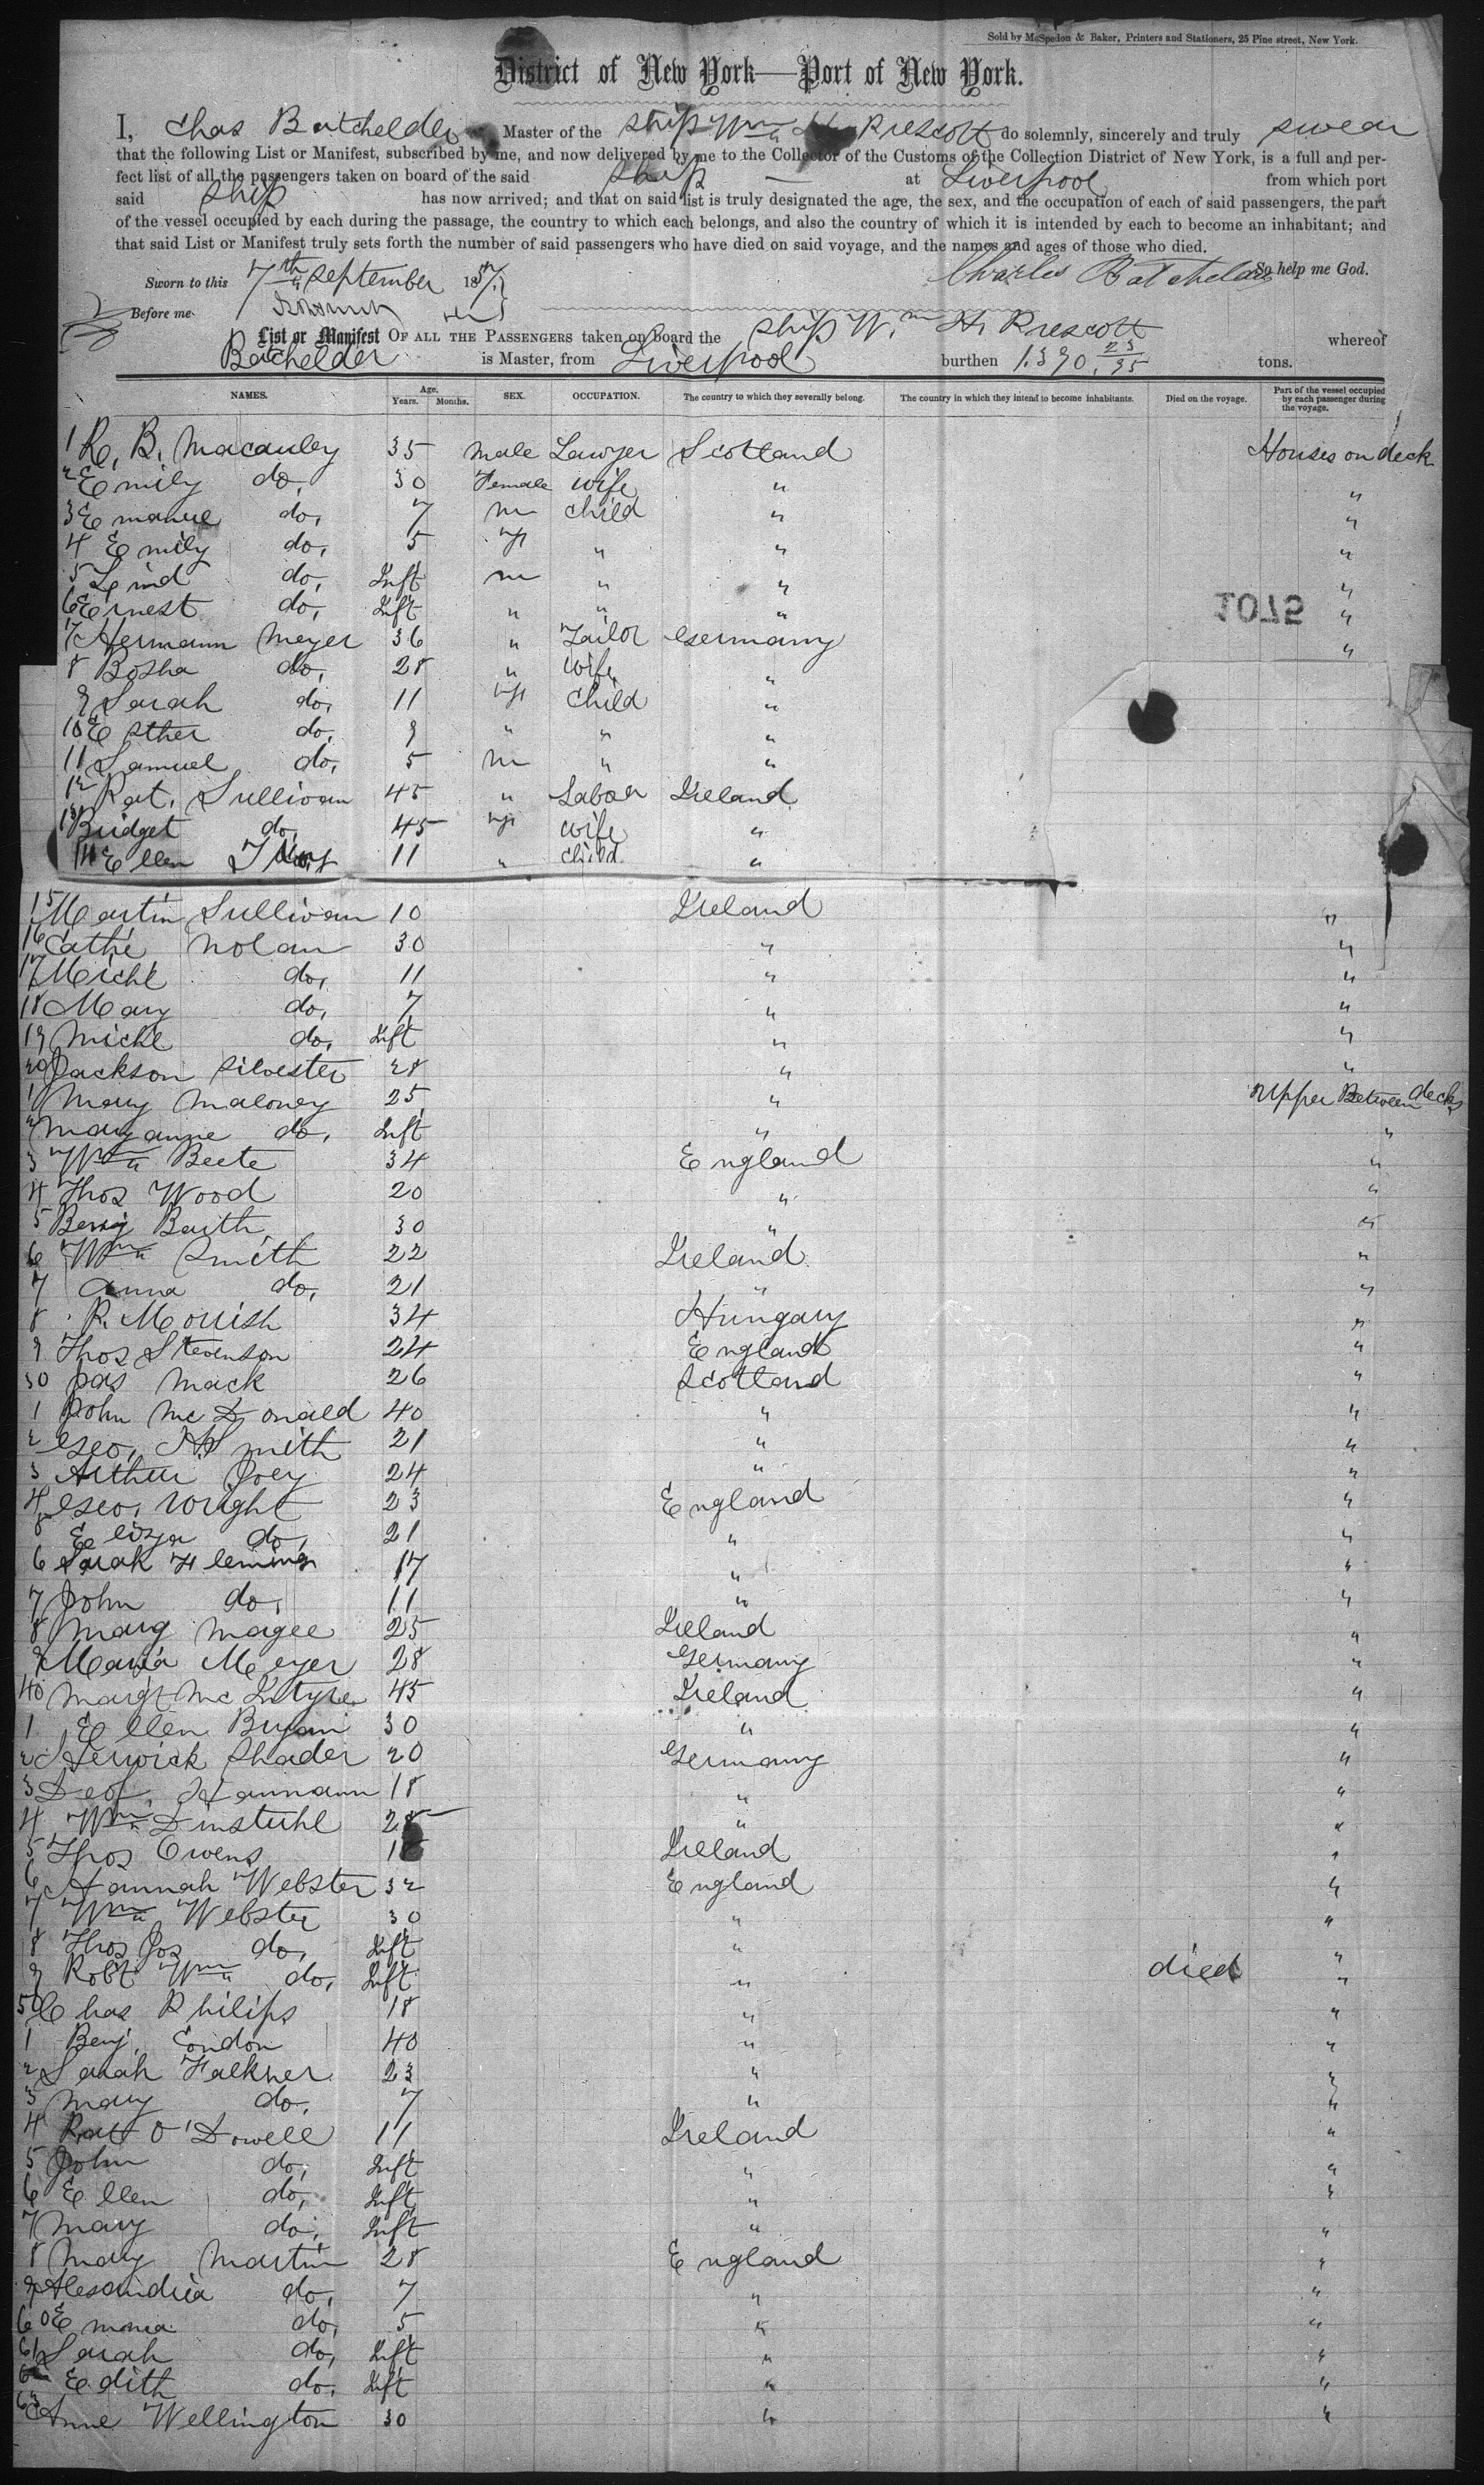 Sold by McSpedon & Baker, Printers and Stationers, 25 Pine street, New York.
District of New York—Port of New York.
I, Chas Batchelder Master of the ship Wm H. Prescott do solemnly, sincerely and truly swear
that the following List or Manifest, subscribed by me, and now delivered by me to the Collector of the Customs of the Collection District of New York, is a full and per-
fect list of all the passengers taken on board of the said ship — at Liverpool from which port
said ship has now arrived; and that on said list is truly designated the age, the sex, and the occupation of each of said passengers, the part
of the vessel occupied by each during the passage, the country to which each belongs, and also the country of which it is intended by each to become an inhabitant; and
that said List or Manifest truly sets forth the number of said passengers who have died on said voyage, and the names and ages of those who died.
Sworn to this 7th September 1857. Charles Batchelder So help me God.
Before me
List or Manifest OF ALL THE PASSENGERS taken on board the ship Wm H. Prescott whereof
Batchelder is Master, from Liverpool burthen 1.390. 23/95 tons.
NAMES. Age. Years. Months. SEX. OCCUPATION. The country to which they severally belong. The country in which they intend to become inhabitants. Died on the voyage. Part of the vessel occupied by each passenger during the voyage.
1 R. B. Macauley 35 male Lawyer Scotland Houses on deck
2 Emily do. 30 Female wife " "
3 Emanue do. 7 m child " "
4 Emily do. 5 f " " "
5 do. Inft m " " "
6 Ernest do. Inft " " " "
7 Hermann Meyer 36 " Tailor Germany "
8 Rosha do. 28 " wife "
9 Sarah do. 11 f child "
10 Esther do. 9 " " "
11 Samuel do. 5 m " "
12 Pat. Sullivan 45 " Labor Ireland
13 Bridget do. 45 f wife "
14 Ellen 11 " child "
15 Martin Sullivan 10 Ireland "
16 Cathe Nolan 30 " "
17 Michl do. 11 " "
18 Mary do. 7 " "
19 Michl do. Inft " "
20 Jackson Silvester 28 " "
1 Mary Maloney 25 " Upper Between decks
2 Maryanne do. Inft " "
3 Wm Beete 34 England "
4 Thos Wood 20 " "
5 Benj Barth 30 " "
6 Wm Smith 22 Ireland "
7 Anna do. 21 " "
8 R. Morrish 34 Hungary "
9 Thos Stevenson 24 England "
30 Jas Mack 26 Scotland "
1 John McDonald 40 " "
2 Geo. H Smith 21 " "
3 Arthur Joey 24 " "
4 Geo. Wright 23 England "
5 Eliza do. 21 " "
6 Sarah Fleming 17 " "
7 John do. 11 " "
8 Marg Magee 25 Ireland "
9 Maria Meyer 28 Germany "
40 Margt McIntyre 45 Ireland "
1 Ellen Bryan 30 " "
2 Herwick Shader 20 Germany "
3 Hannann 18 " "
4 Wm Dinstuhl 28 " "
5 Thos Owens Ireland "
6 Hannah Webster 32 England "
7 Wm Webster 30 " "
8 Thos Jos do. Inft " "
9 Robt Wm do. Inft " died "
50 Chas Philips 18 " "
1 Benj. Condon 40 " "
2 Sarah Falkner 23 " "
3 Mary do. 7 " "
4 Pat O'Dowell 11 Ireland "
5 John do. Inft " "
6 Ellen do. Inft " "
7 Mary do. Inft " "
8 Mary Martin 28 England "
9 Alexandria do. 7 " "
60 Emma do. 5 " "
61 Sarah do. Inft " "
62 Edith do. Inft " "
63 Anne Wellington 30 " "